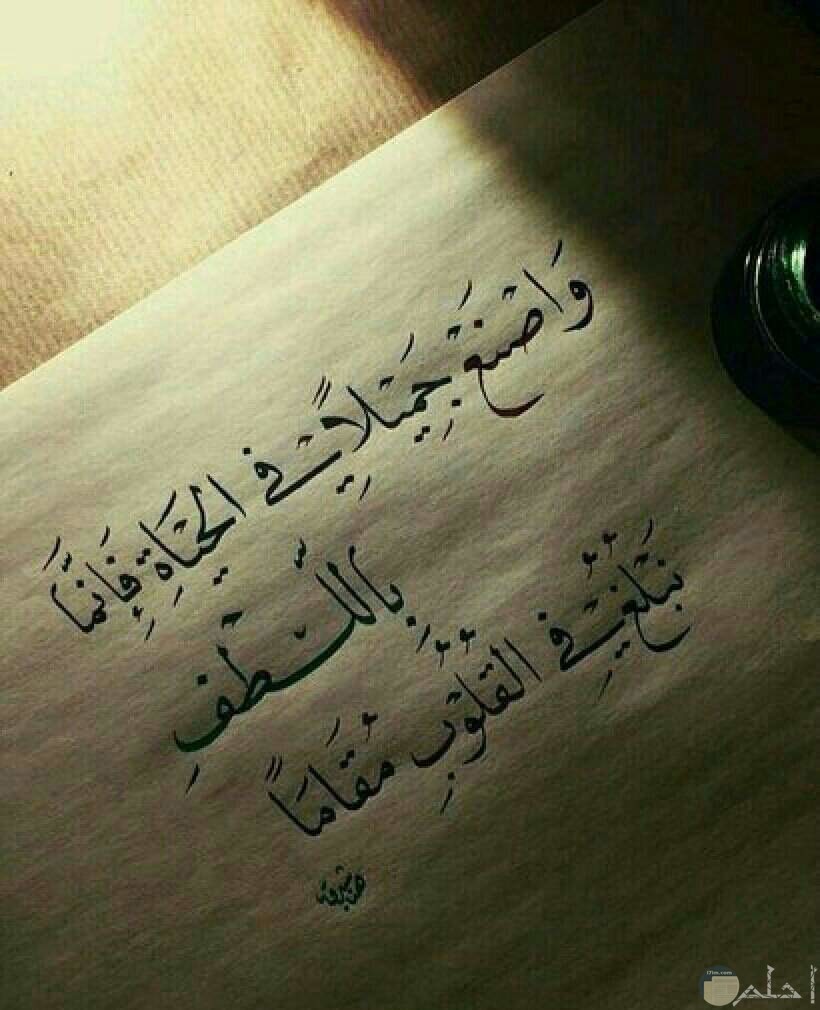 وَاصْنَعْ جَمِيْلاً فِيْ الْحَيَاةِ فَإِنَّمَا
بِاللُّطْفِ
نَبْلُغُ فِيْ الْقُلُوْبِ مُقَامَاً
احلم